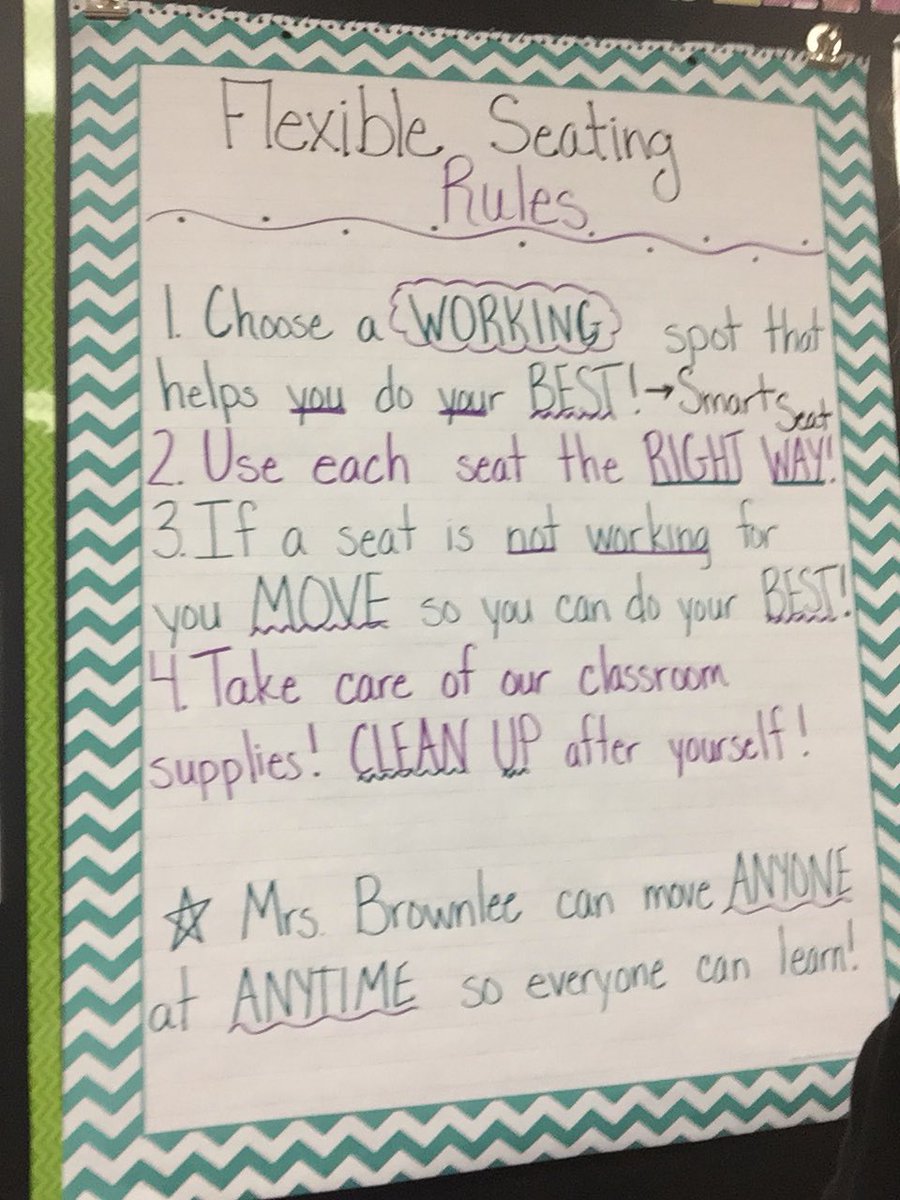 Flexible Seating
Rules
1. Choose a WORKING spot that
helps you do your BEST! → Smart Seat
2. Use each seat the RIGHT WAY!
3. If a seat is not working for
you MOVE so you can do your BEST!
4. Take care of our classroom
supplies! CLEAN UP after yourself!
☆ Mrs. Brownlee can move ANYONE
at ANYTIME so everyone can learn!